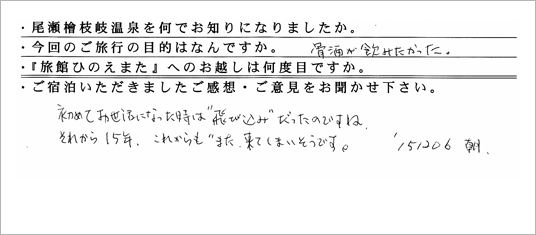 ・尾瀬檜枝岐温泉を何でお知りになりましたか。
・今回のご旅行の目的はなんですか。 骨酒が飲みたかった。
・『旅館ひのえまた』へのお越しは何度目ですか。
・ご宿泊いただきましたご感想・ご意見をお聞かせ下さい。
初めてお世話になった時は"飛び込み"だったのですね
それから15年、これからも"また、来てしまいそうです。 '151206 朝.